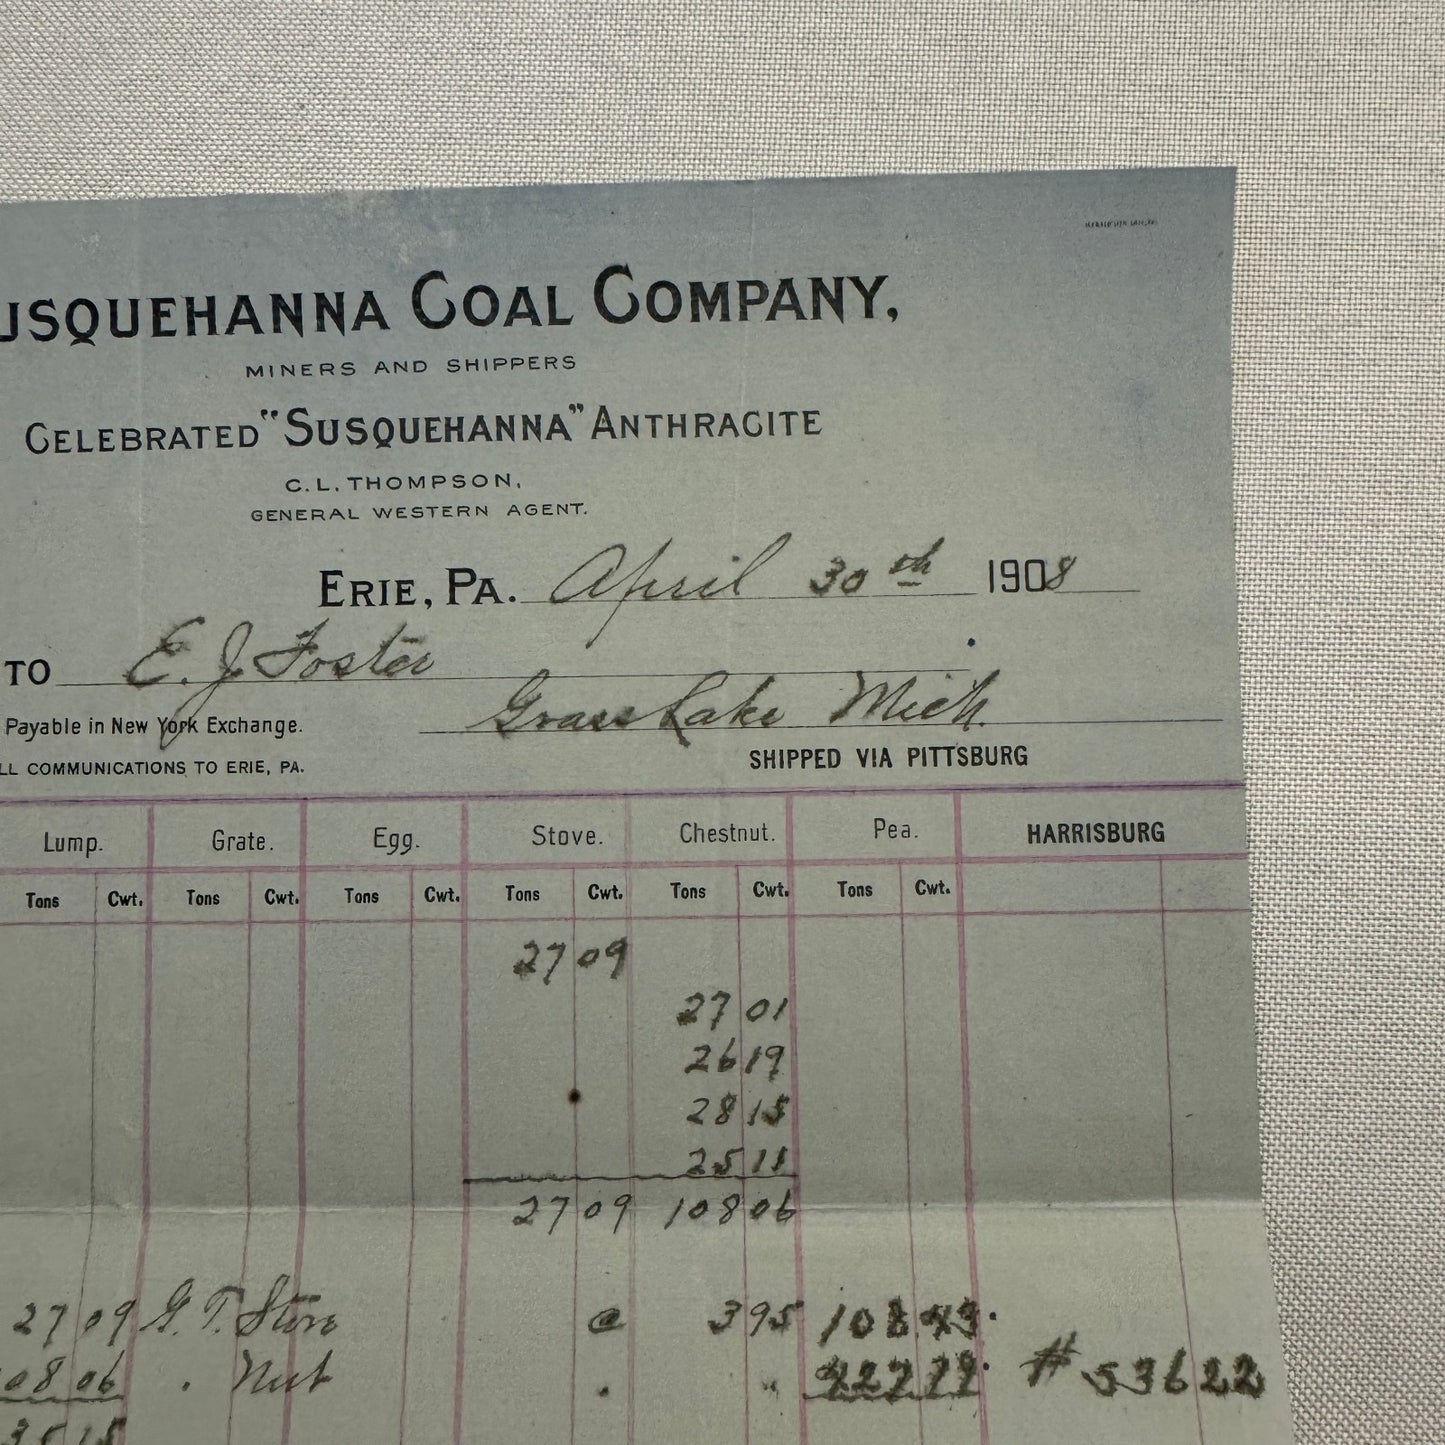 USQUEHANNA COAL COMPANY,
MINERS AND SHIPPERS
CELEBRATED "SUSQUEHANNA" ANTHRACITE
C. L. THOMPSON,
GENERAL WESTERN AGENT.
ERIE, PA. April 30th 1908
TO E. J. Foster
Grass Lake Mich.
Payable in New York Exchange.
LL COMMUNICATIONS TO ERIE, PA.
SHIPPED VIA PITTSBURG
Lump. Grate. Egg. Stove. Chestnut. Pea. HARRISBURG
Tons Cwt. Tons Cwt. Tons Cwt. Tons Cwt. Tons Cwt. Tons Cwt.
27 09
27 01
26 19
28 15
25 11
27 09 108 06
27 09 G. T. Stove @ 3 95 108 43
08 06 . Nut . " # 536 22
35 15